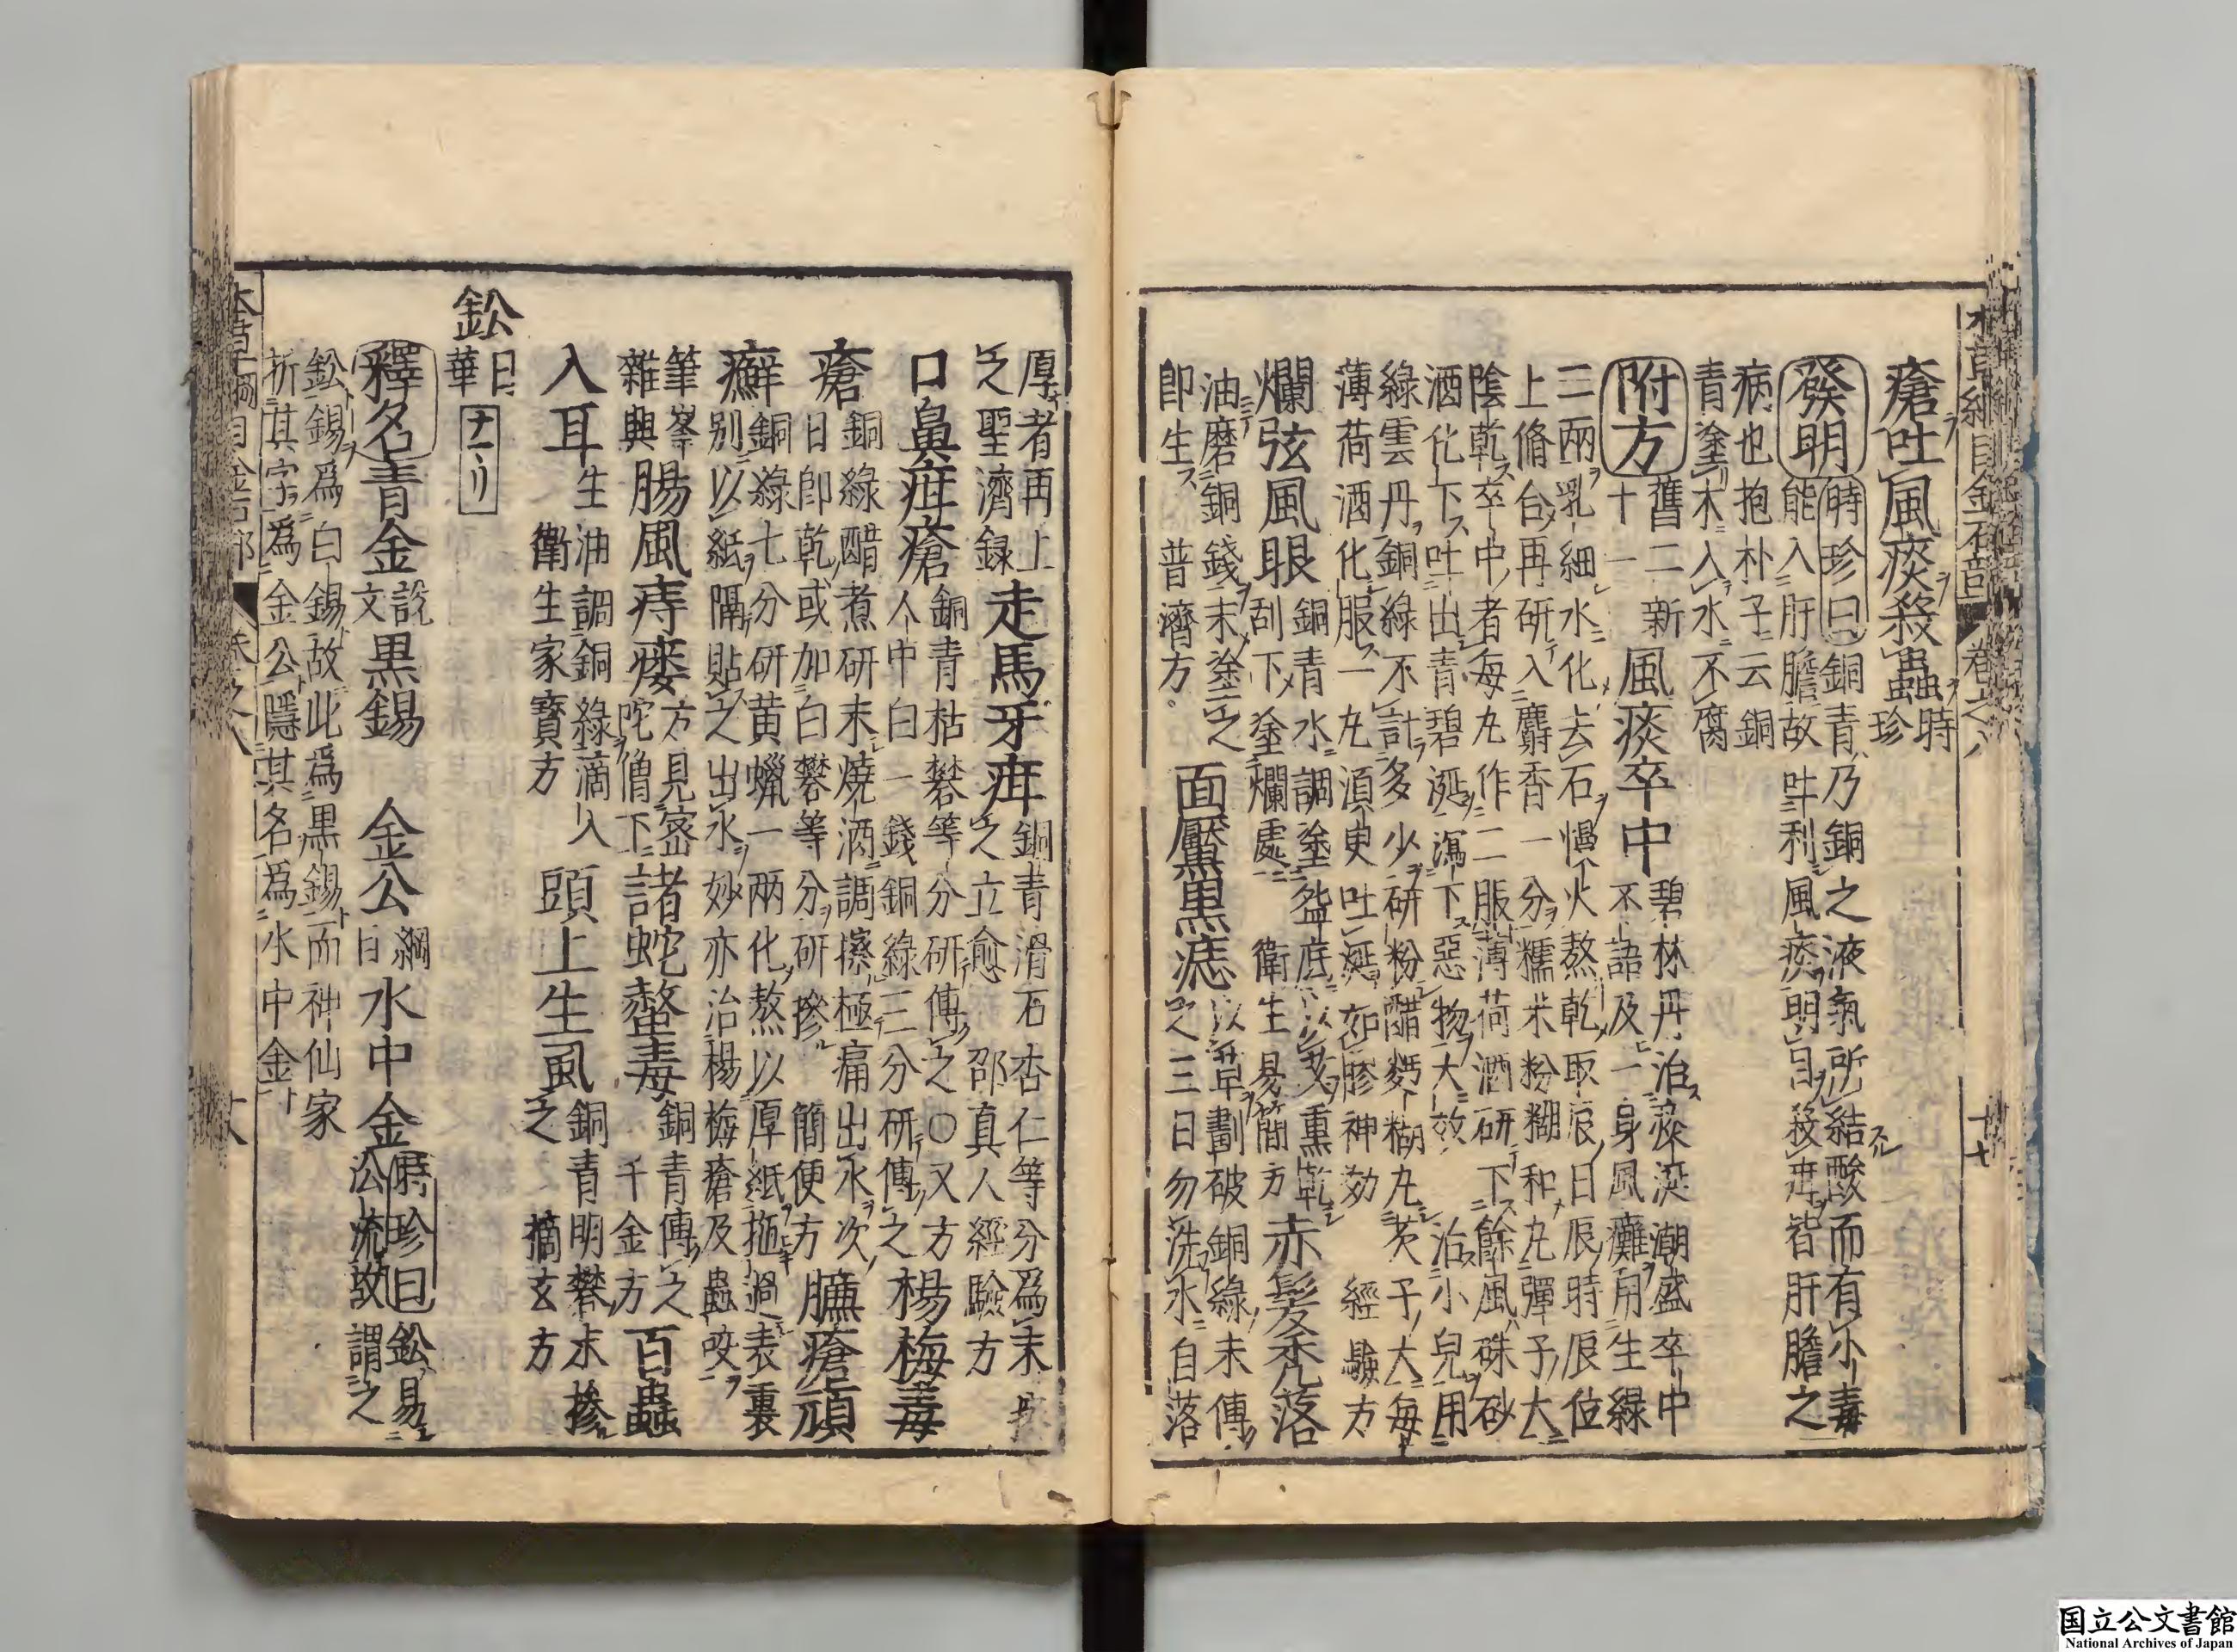 本草綱目金石部 卷之八 十七
瘡吐風痰殺蟲時珍
發明時珍曰銅青乃銅之液氣所結酸而有小毒
能入肝膽故吐利風痰明目殺疳皆肝膽之
病也抱朴子云銅
青塗木入水不腐
附方舊二新十一風痰卒中碧林丹治痰涎潮盛卒中
不語及一身風癱用生綠
二兩乳細水化去石慢火熬乾取辰日辰時辰位
上脩合再研入麝香一分糯米粉糊和丸彈子大
陰乾卒中者每丸作二服薄荷酒研下餘風硃砂
酒化下吐出青碧涎瀉下惡物大效 治小兒用
綠雲丹銅綠不計多少研粉醋麪糊丸芡子大每
薄荷酒化服一丸須臾吐涎如膠神効 經驗方
爛弦風眼銅青水調塗盌底以艾熏乾
刮下塗爛處 衛生易簡方赤髪禿落
油磨銅錢末塗之
即生 普濟方面黶黒痣以草劃破銅綠末傳
之三日勿洗水自落
厚者再上
之聖濟録走馬牙疳銅青滑石杏仁等分爲末擦
之立愈 邵真人經驗方
口鼻疳瘡銅青枯礬等分研傅之〇又方
人中白一錢銅綠三分研傅之楊梅毒
瘡銅綠醋煮研末燒酒調擦極痛出水次
日即乾或加白礬等分研摻 簡便方臁瘡頑
癬銅綠七分研黄蠟一兩化熬以厚紙拖過表裏
别以紙隔貼之出水妙亦治楊梅瘡及蟲咬
筆峯
雜興腸風痔瘻方見密
陀僧下諸蛇螫毒銅青傅之
千金方百蟲
入耳生油調銅綠滴入
衛生家寶方頭上生虱銅青明礬末摻
之 摘玄方
鈆日華
ナマリ
釋名青金說文黒錫 金公綱目水中金時珍曰鈆易
㳂流故謂之
鈆錫爲白錫故此爲黒錫而神仙家
折其字爲金公隱其名爲水中金
本草綱目金石部 卷之八
国立公文書館
National Archives of Japan